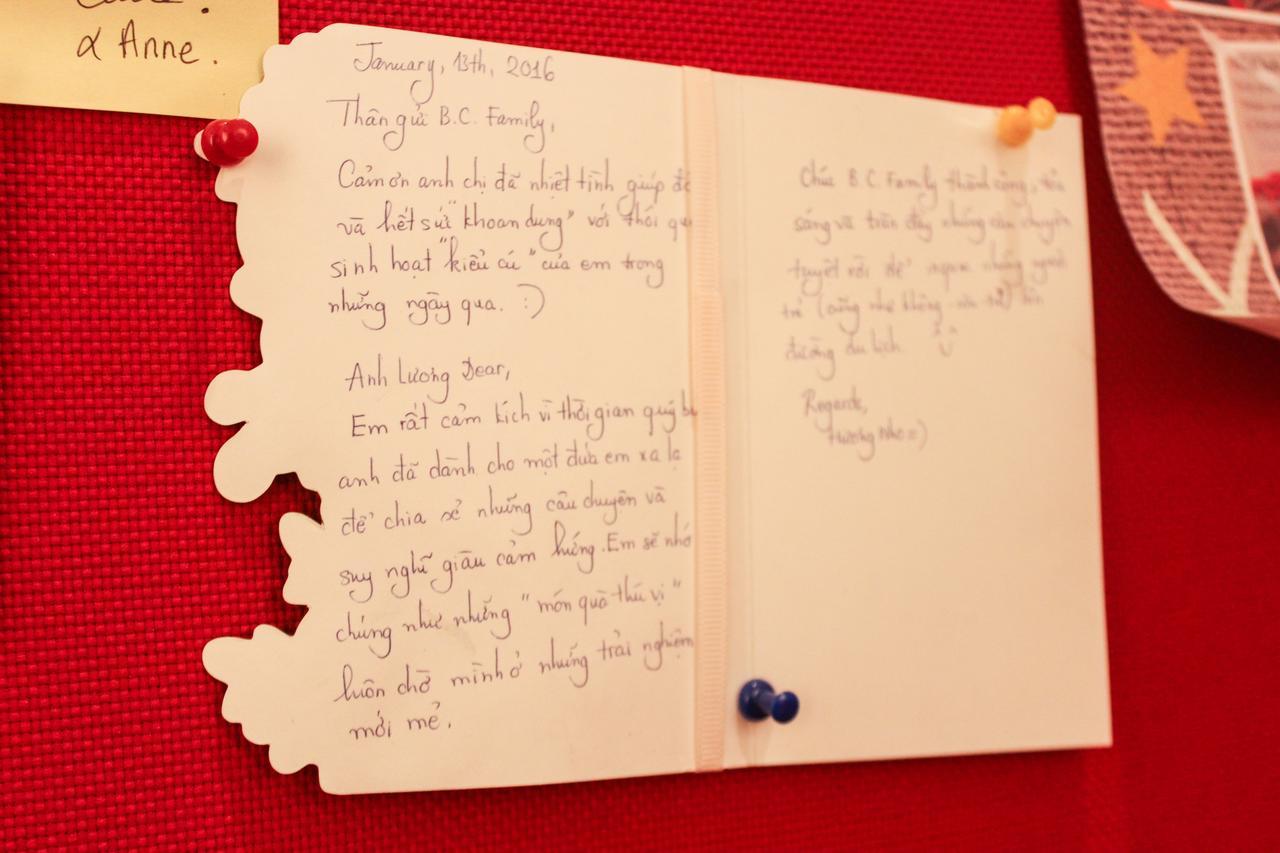 & Anne.
January, 13th, 2016
Thân gửi B.C. Family,
Cảm ơn anh chị đã nhiệt tình giúp đỡ
và hết sức "khoan dung" với thói
sinh hoạt "kiểu cú" của em trong
những ngày qua. :)
Anh Lương Dear,
Em rất cảm kích vì thời gian quý
anh đã dành cho một đứa em xa lạ
để chia sẻ những câu chuyện và
suy nghĩ giàu cảm hứng. Em sẽ nhớ
chúng như những "món quà thú vị"
luôn chờ mình ở những trải nghiệm
mới mẻ.
Chúc B.C. Family thành công, tỏa
sáng và tràn đầy những câu chuyện
tuyệt vời để những người
trẻ (cũng như không còn trẻ) trên
đường du lịch.
Regards,